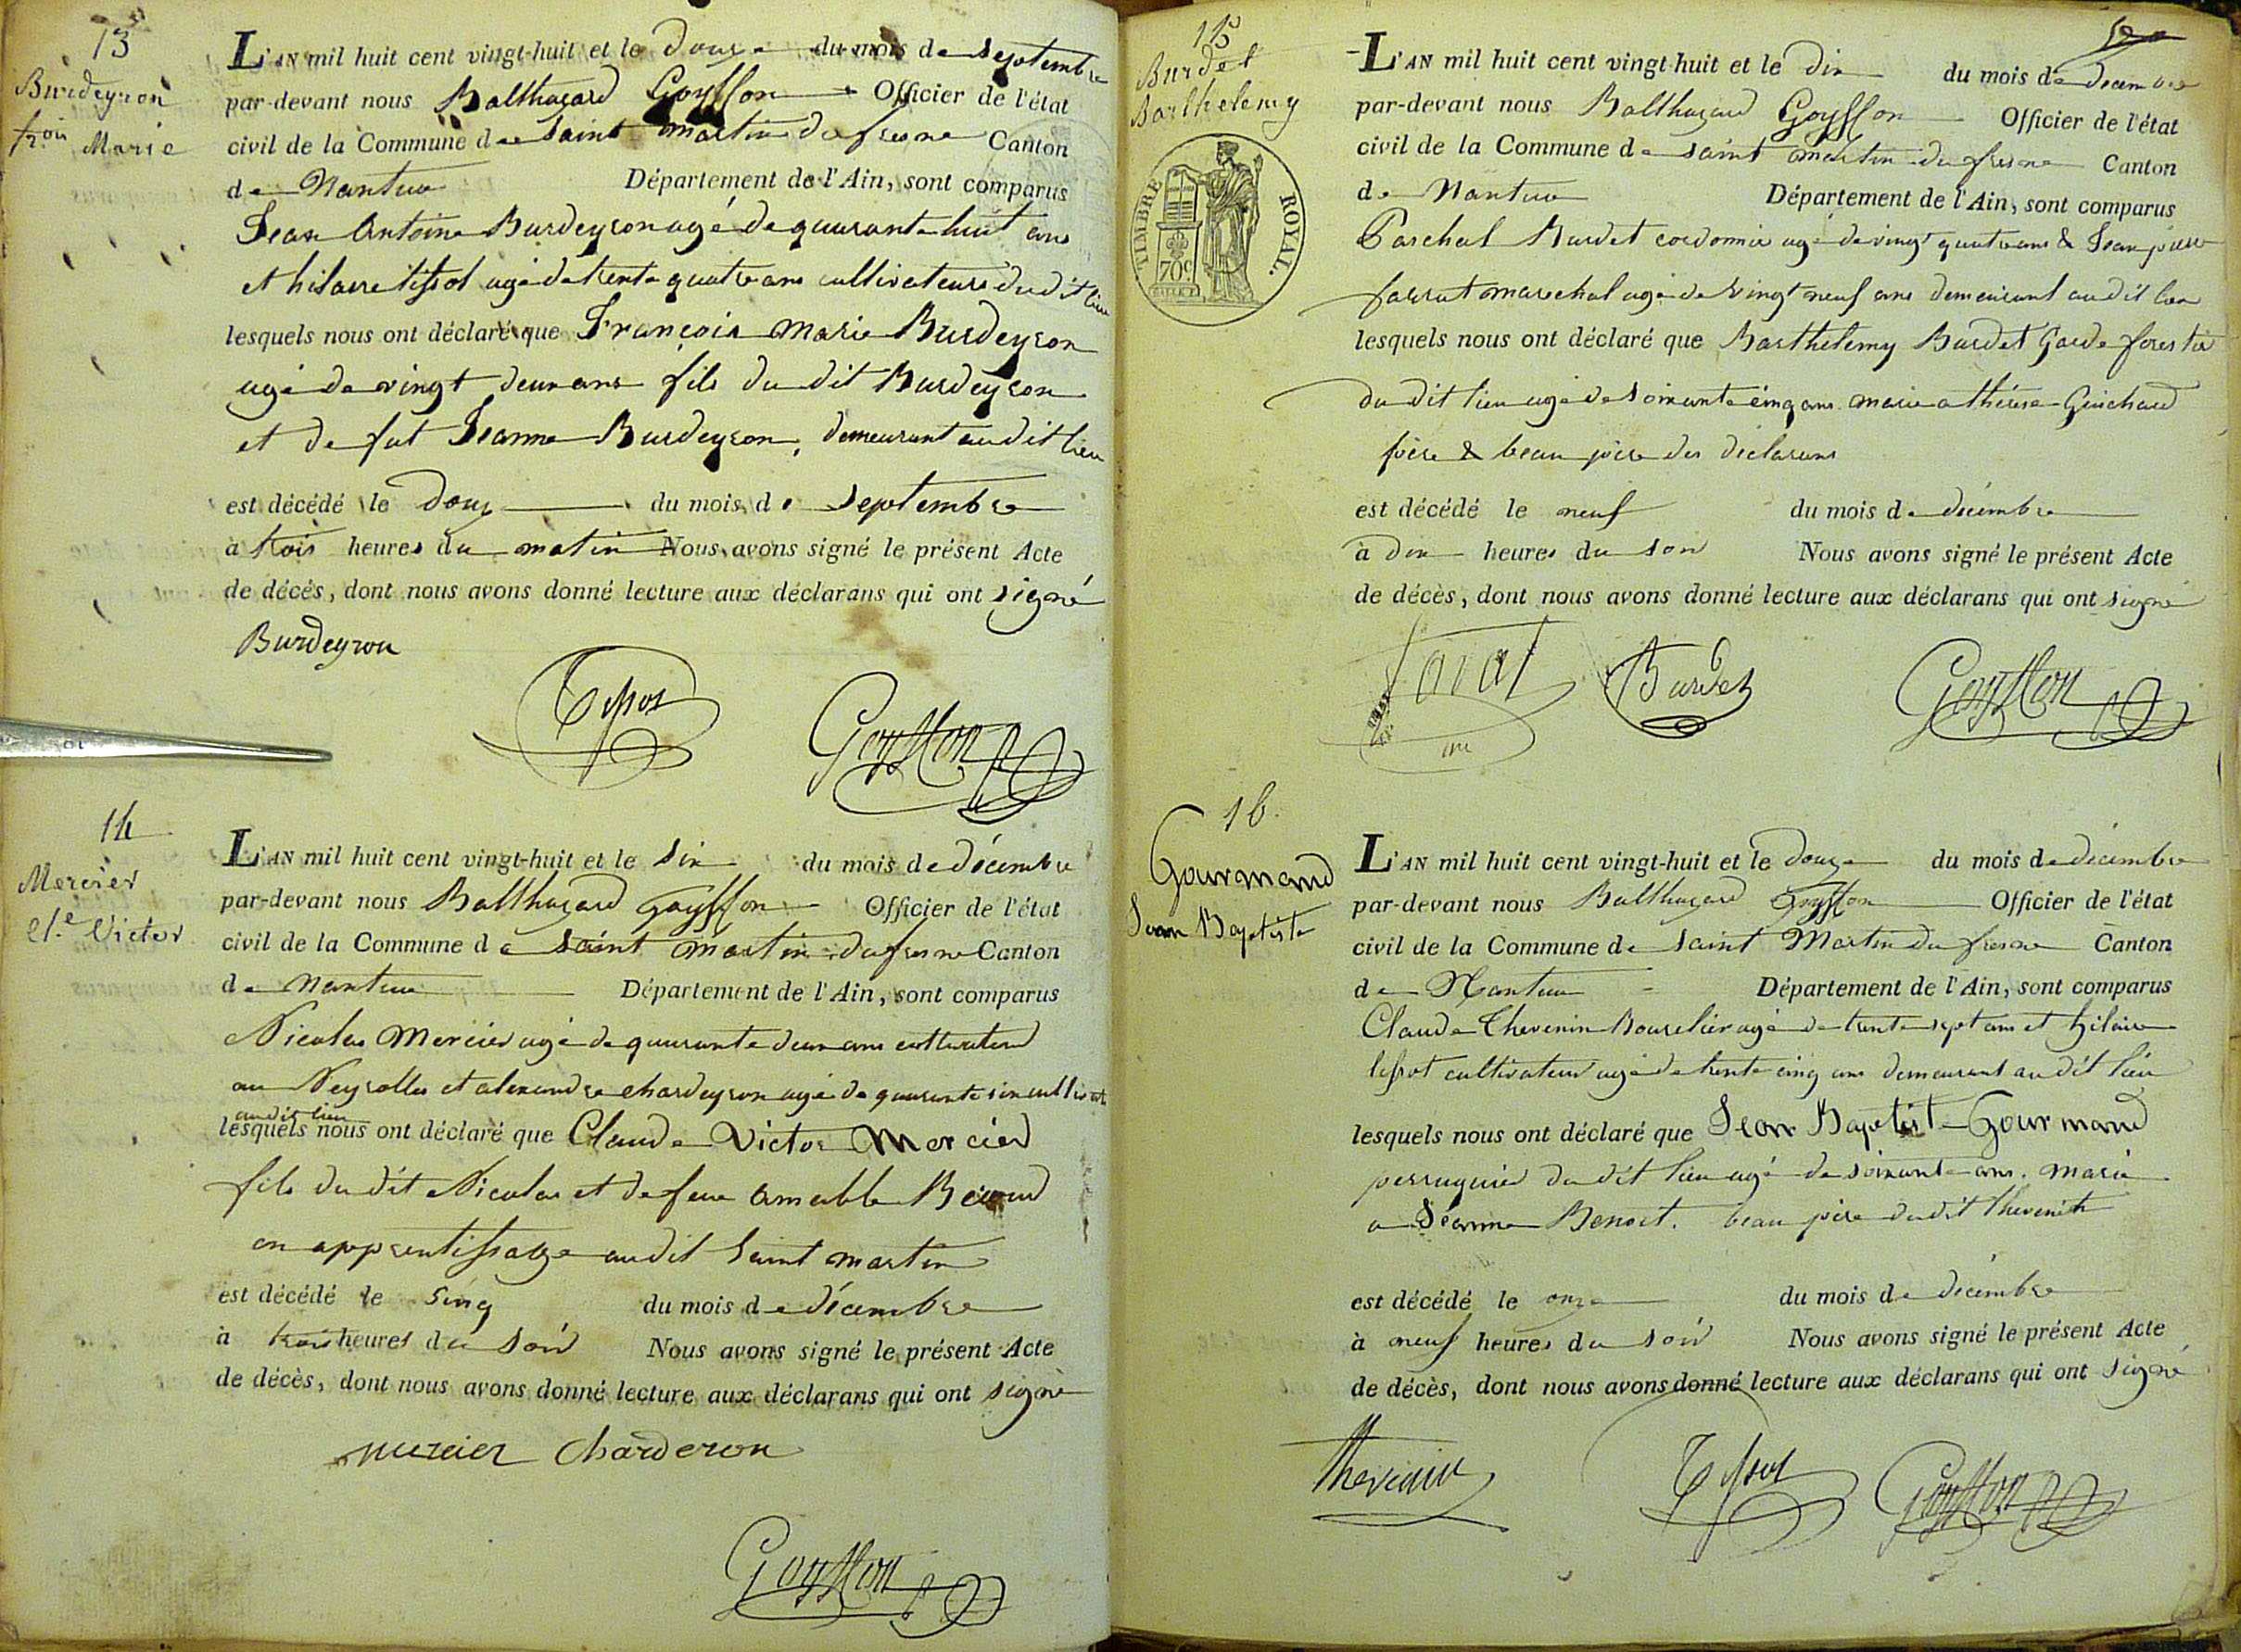 13
Burdeyron
frois Marie
L'AN mil huit cent vingt-huit et le douze du mois de septembre
par-devant nous Balthazard Goyffon Officier de l'état
civil de la Commune de saint martin du fresne Canton
de Nantua Département de l'Ain, sont comparus
Jean Antoine Burdeyron agé de quarante huit ans
et hilaire tissot agé de trente quatre ans cultivateurs du dit lieu
lesquels nous ont déclaré que François marie Burdeyron
agé de vingt deux ans fils du dit Burdeyron
et de fut Jeanne Burdeyron, demeurant audit lieu
est décédé le douze du mois de septembre
à trois heures du matin Nous avons signé le présent Acte
de décès, dont nous avons donné lecture aux déclarans qui ont signé
Burdeyron
Tissot Goyffon
14
Mercier
Cl.e Victor
L'AN mil huit cent vingt-huit et le six du mois de décembre
par-devant nous Balthazard Goyffon Officier de l'état
civil de la Commune de saint martin du fresne Canton
de Nantua Département de l'Ain, sont comparus
Nicolas Mercier agé de quarante deux ans cultivateur
au Neyrolles et alexandre chardeyron agé de quarante six
audit lieu
lesquels nous ont déclaré que Claude Victor Mercier
fils du dit Nicolas et de feue amable
en apprentissage audit saint martin
est décédé le sinq du mois de décembre
à trois heures du soir Nous avons signé le présent Acte
de décès, dont nous avons donné lecture aux déclarans qui ont signé
mercier Charderon
Goyffon
15
Burdet
Barthelemy
TIMBRE ROYAL.
70c
L'AN mil huit cent vingt-huit et le dix du mois de decembre
par-devant nous Balthazard Goyffon Officier de l'état
civil de la Commune de saint martin du fresne Canton
de Nantua Département de l'Ain, sont comparus
Paschal Burdet cordonnier agé de vingt quatre ans & Jean pierre
marechal agé de vingt neuf ans demeurant audit lieu
lesquels nous ont déclaré que Barthelemy Burdet Garde forestier
du dit lieu agé de soixante cinq ans marie a thérèse Guichard
père & beau père des déclarans
est décédé le neuf du mois de décembre
à dix heures du soir Nous avons signé le présent Acte
de décès, dont nous avons donné lecture aux déclarans qui ont signé
Burdet Goyffon
16.
Gourmand
Jean Baptiste
L'AN mil huit cent vingt-huit et le douze du mois de décembre
par-devant nous Balthazard Goyffon Officier de l'état
civil de la Commune de saint Martin du fresne Canton
de Nantua Département de l'Ain, sont comparus
Claude Thevenin Bourelier agé de trente sept ans et hilaire
tissot cultivateur agé de trente cinq ans demeurant audit lieu
lesquels nous ont déclaré que Jean Baptiste Gourmand
perruquier du dit lieu agé de soixante ans. marié
a Séanne Benoit. beau père dudit thevenin
est décédé le onze du mois de décembre
à neuf heures du soir Nous avons signé le présent Acte
de décès, dont nous avons donné lecture aux déclarans qui ont signé
Thevenin Tissot Goyffon